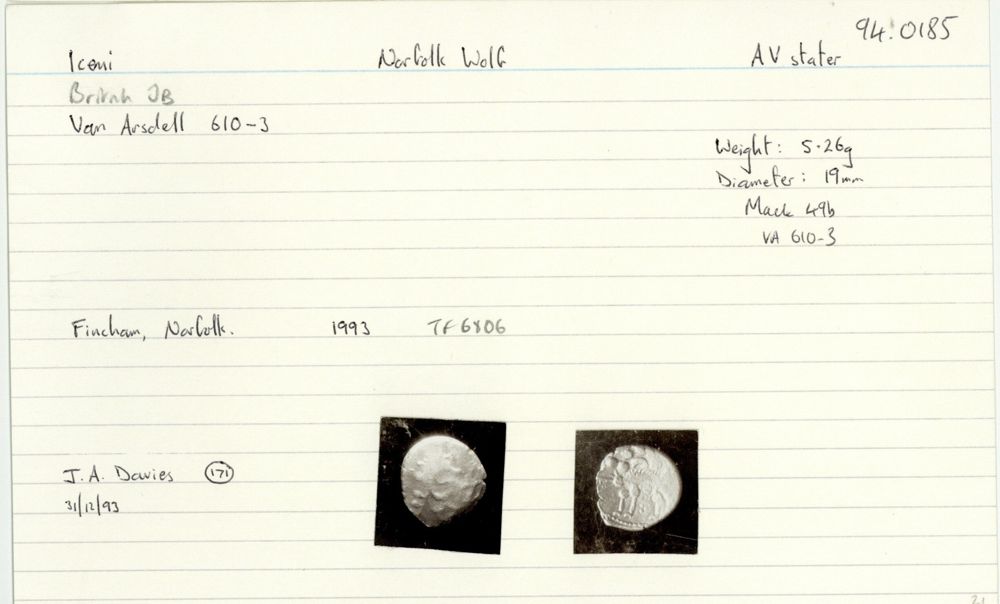 94.0185
Iceni Norfolk Wolf AV stater
British JB
Van Arsdell 610-3
Weight: 5.26g
Diameter: 19mm
Mack 49b
VA 610-3
Fincham, Norfolk. 1993 TF6806
J.A. Davies 171
31/12/93